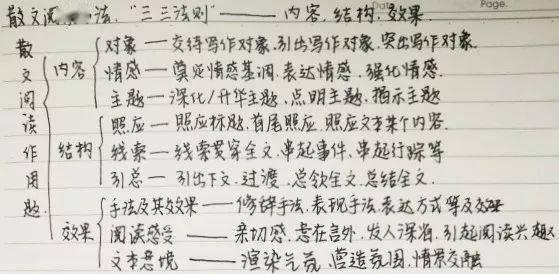 散文阅 法. "三三法则" —— 内容. 结构. 效果.
散文阅读作用题
内容
对象 — 交待写作对象. 引出写作对象. 突出写作对象.
情感 — 奠定情感基调. 表达情感. 强化情感.
主题 — 深化/升华主题. 点明主题. 揭示主题
结构
照应 — 照应标题. 首尾照应. 照应文本某个内容.
线索 — 线索贯穿全文. 串起事件. 串起行踪等
引总 — 引出下文. 过渡. 总领全文. 总结全文.
效果
手法及其效果 — 修辞手法. 表现手法. 表达方式等及效果
阅读感受 — 亲切感. 意在言外. 发人深省. 引起阅读兴趣
文本意境 — 渲染气氛. 营造氛围. 情景交融